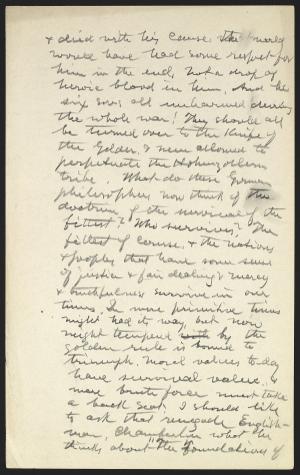 & died with his cause the world
would have had some respect for
him in the end. Not a drop of
heroic blood in him. And his
six sons all unharmed during
the whole war! They should all
be turned over to the knife of
the Gelder, & never allowed to
perpetuate the Hohenzollern
tribe. What do these German
philosophers now think of the
doctrine of the survival of the
fittest? Who survives? The
fittest of course, & the nations
& peoples that have some sense
of justice & fair dealing & mercy
& truthfulness survive in our
times. In more primitive times
might had its way, but now
might tempered with by the
golden rule is bound to
triumph. Moral values to-day
have survival value,
mere brute force must take
a back seat. I should like
to ask that renegade English-
man, Chamberlin what he
thinks about "The Foundations of